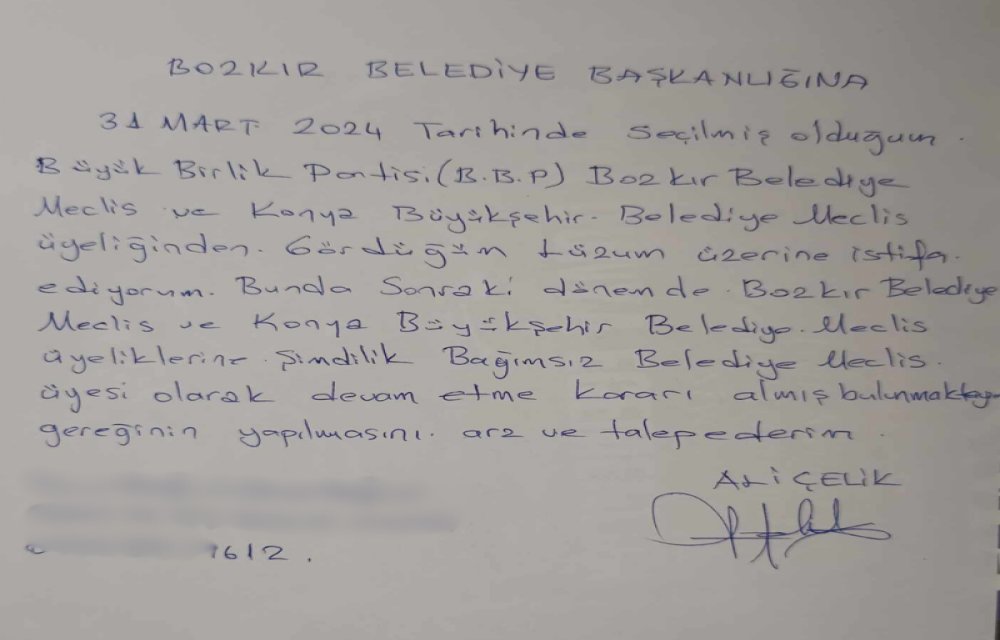 BOZKIR BELEDİYE BAŞKANLIĞINA
31 MART 2024 Tarihinde seçilmiş olduğum.
Büyük Birlik Partisi (B.B.P) Bozkır Belediye
Meclis ve Konya Büyükşehir. Belediye Meclis
üyeliğinden. Gördüğüm Lüzum üzerine istifa.
ediyorum. Bundan Sonraki dönemde. Bozkır Belediye
Meclis ve Konya Büyükşehir Belediye. Meclis
üyeliklerine. Şimdilik Bağımsız Belediye Meclis.
üyesi olarak devam etme kararı almış bulunmaktayım
gereğinin yapılmasını. arz ve talep ederim.
ALİ ÇELİK
1612.